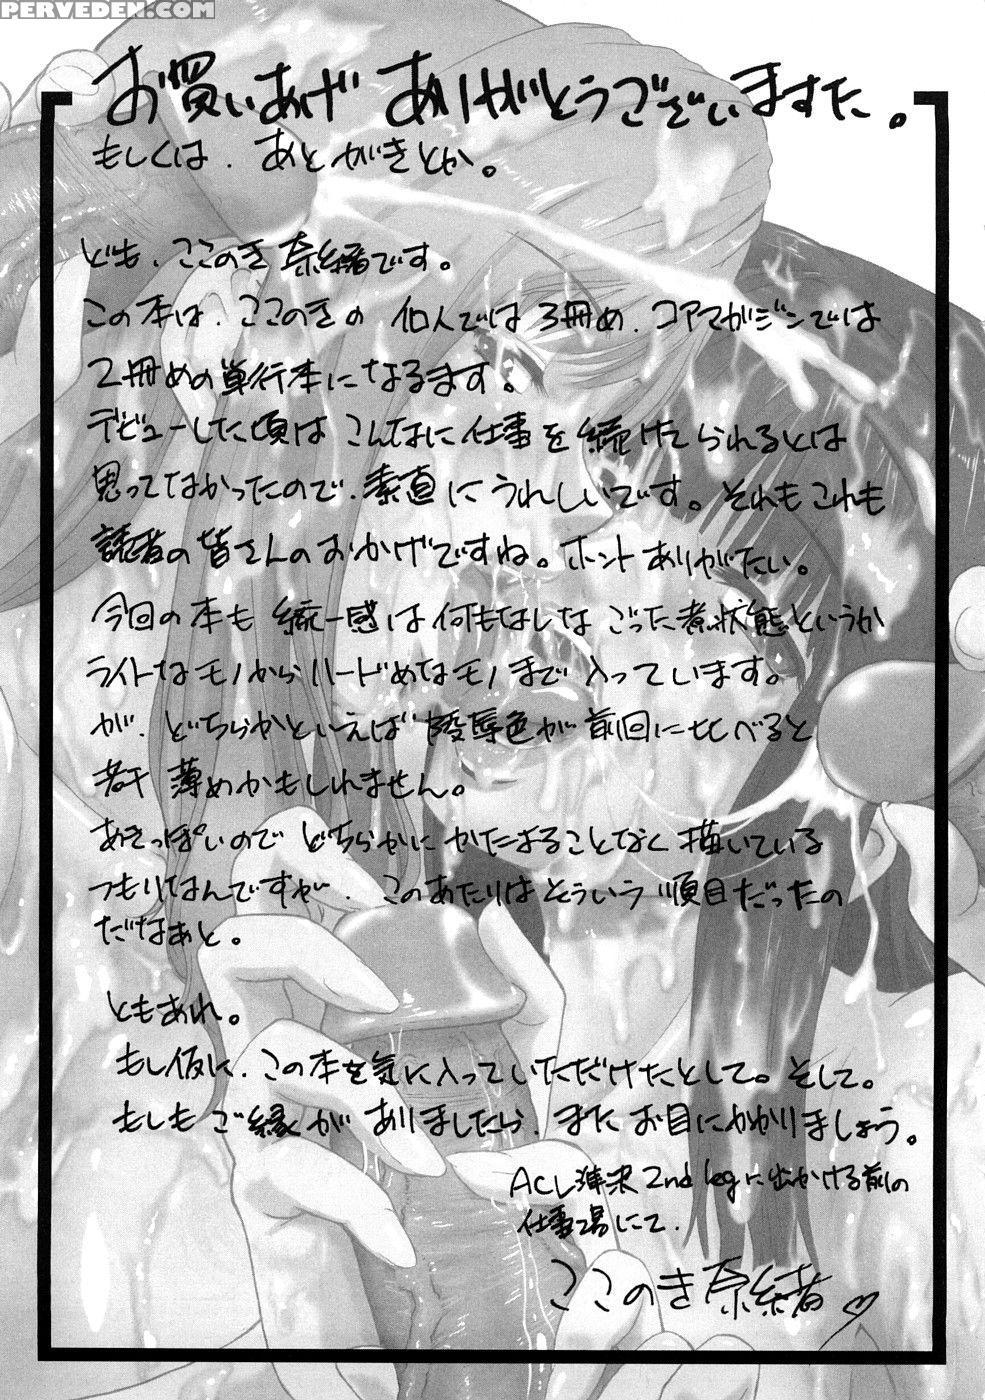 PERVEDEN.COM
お買いあげ ありがとうございますた。
もしくは、あとがきとか。
ども、ここのき奈緒です。
この本は、ここのきの 個人では3冊め、コアマガジンでは
2冊めの単行本になるます。
デビューした頃は こんなに仕事を続けてられるとは
思ってなかったので、素直にうれしいです。それもこれも
読者の皆さんのおかげですね。ホントありがたい。
今回の本も 統一感は何もはしな ごった煮状態というか
ライトなモノからハードめなモノまで入っています。
が、どちらかといえば 陵辱色が前回に比べると
若干 薄めかもしれません。
あきっぽいので どちらかにかたまることなく描いている
つもりなんですが、このあたりはそういう順目だったの
だなぁと。
ともあれ。
もし仮に、この本を気に入っていただけたとして。そして。
もしもご縁がありましたら、またお目にかかりましょう。
ACL 準決 2nd legに出かける前の
仕事場にて、
ここのき奈緒